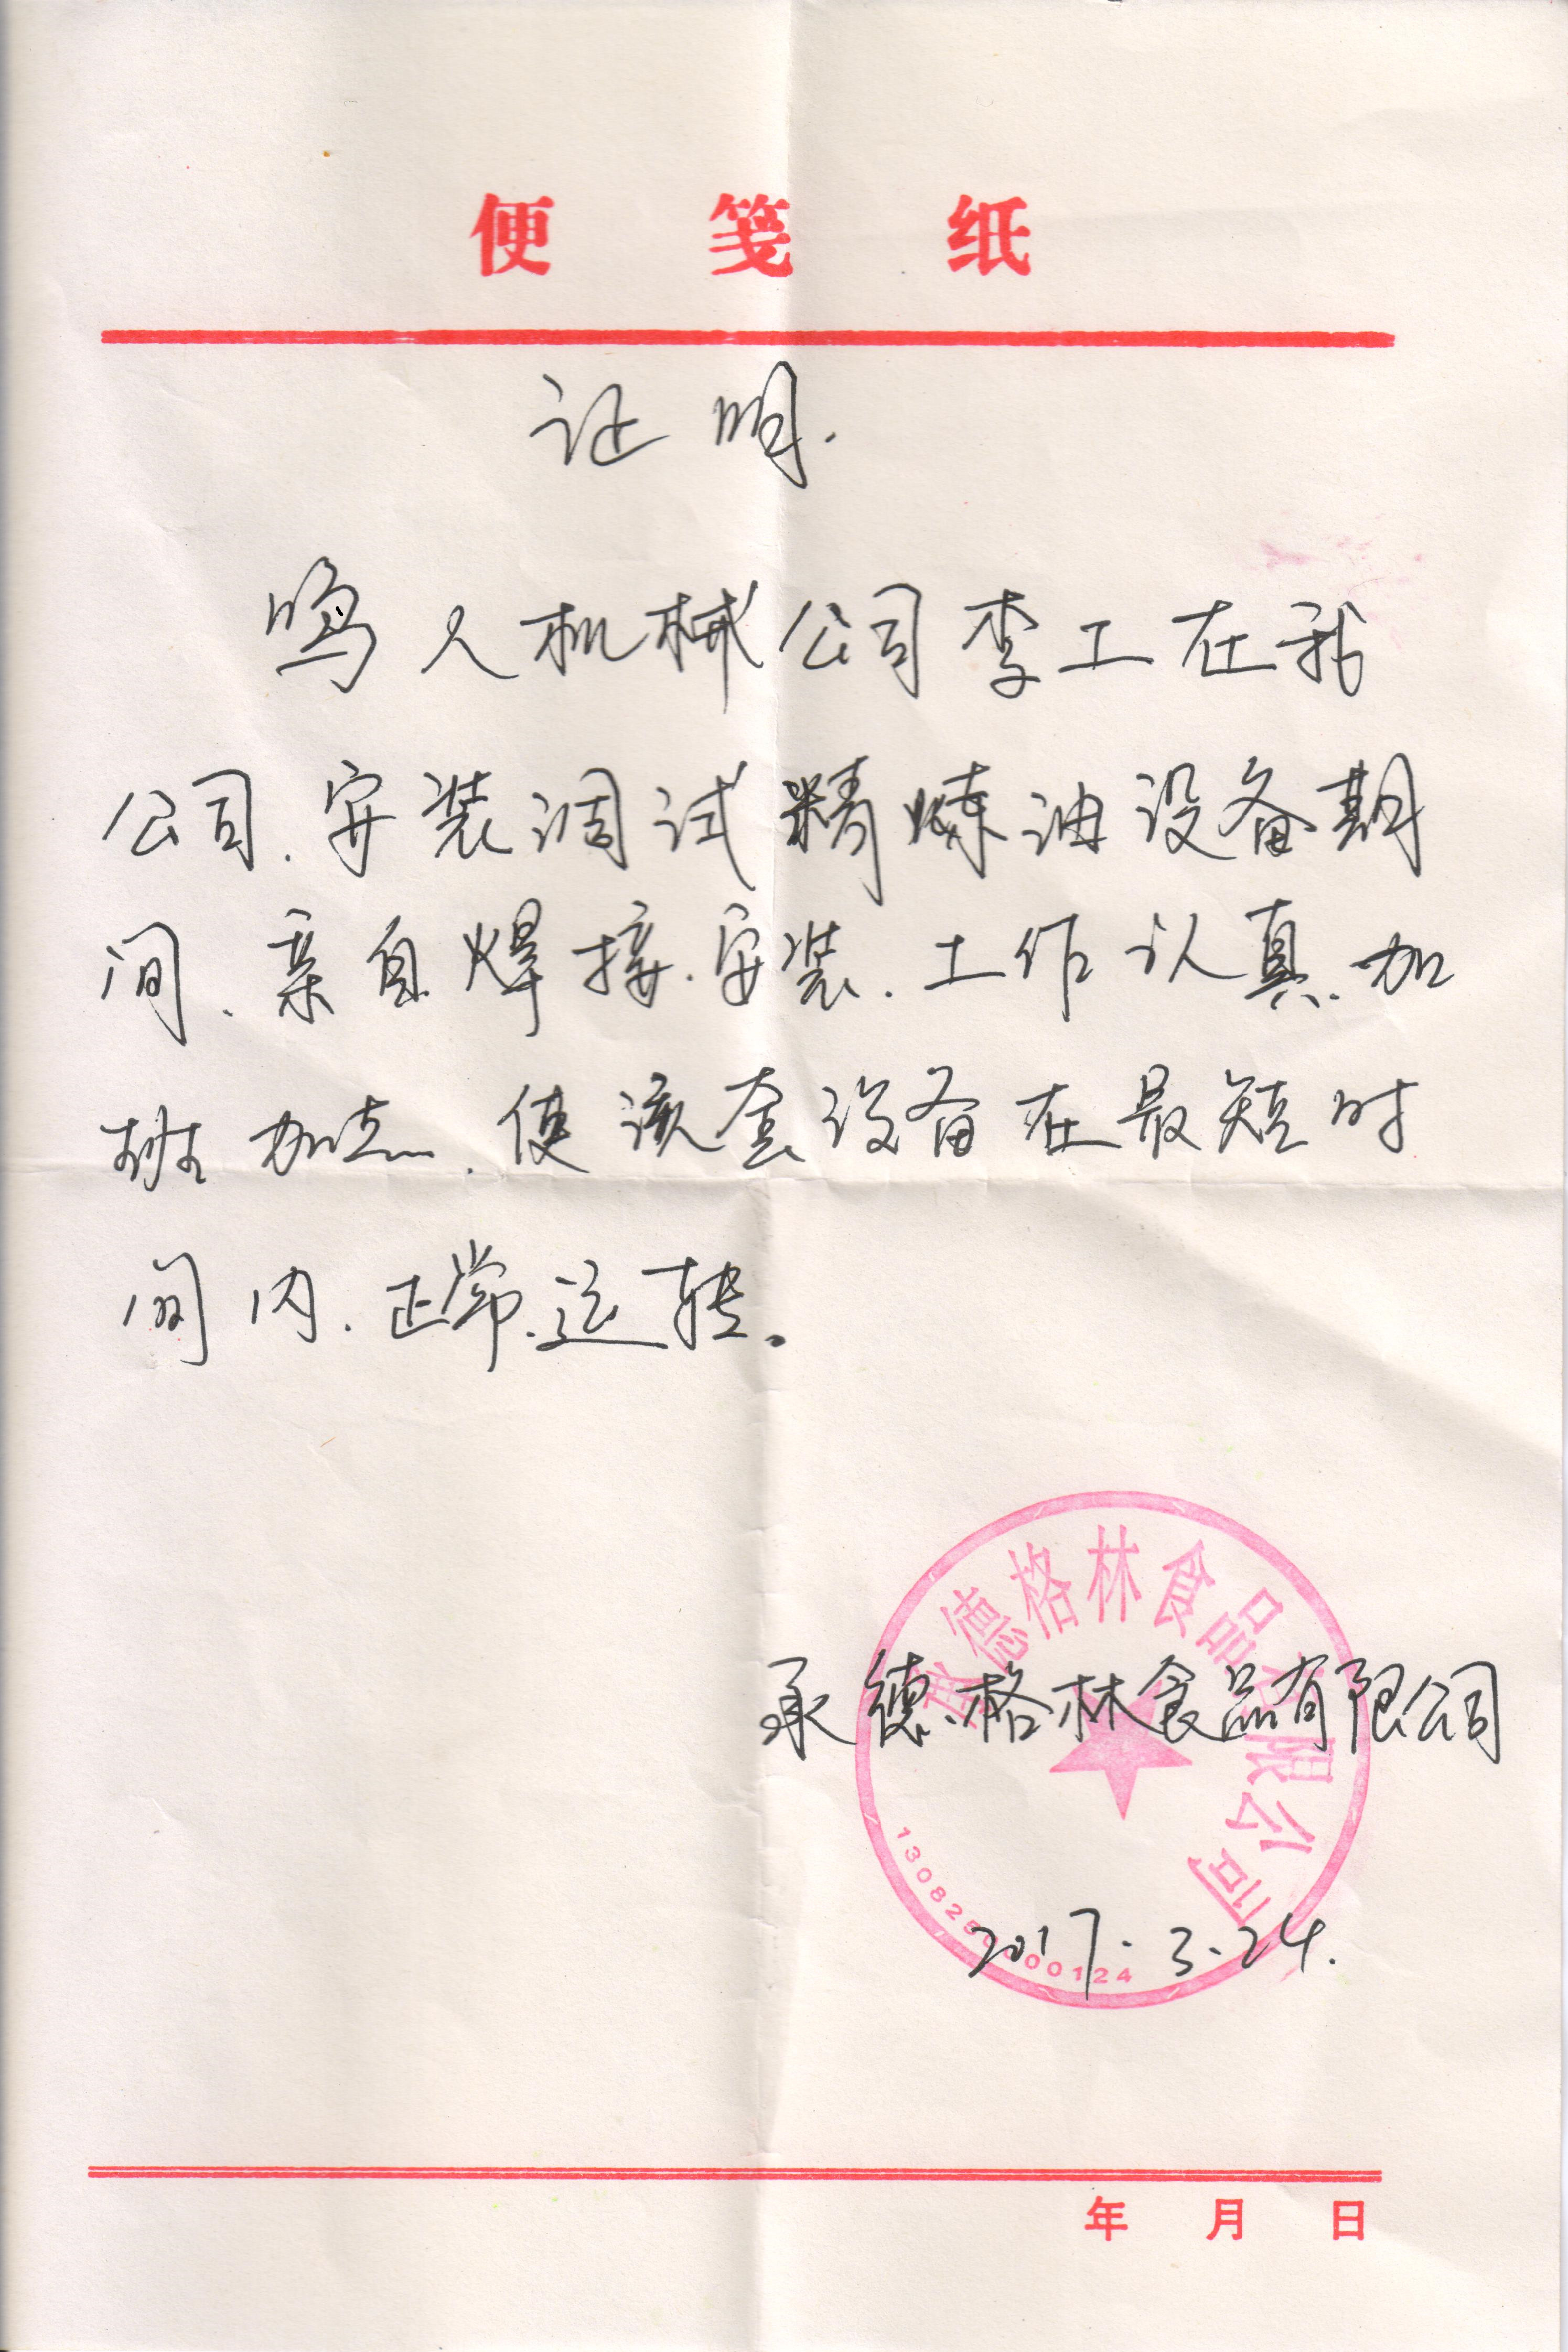 便笺纸
证明.
鸣人机械公司李工在我
公司.安装调试精炼油设备期
间.亲自焊接.安装.工作认真.加
班加点.使该套设备在最短时
间内.正常.运转。
承德格林食品有限公司
承德.格林食品有限公司
2017.3.24.
年月日